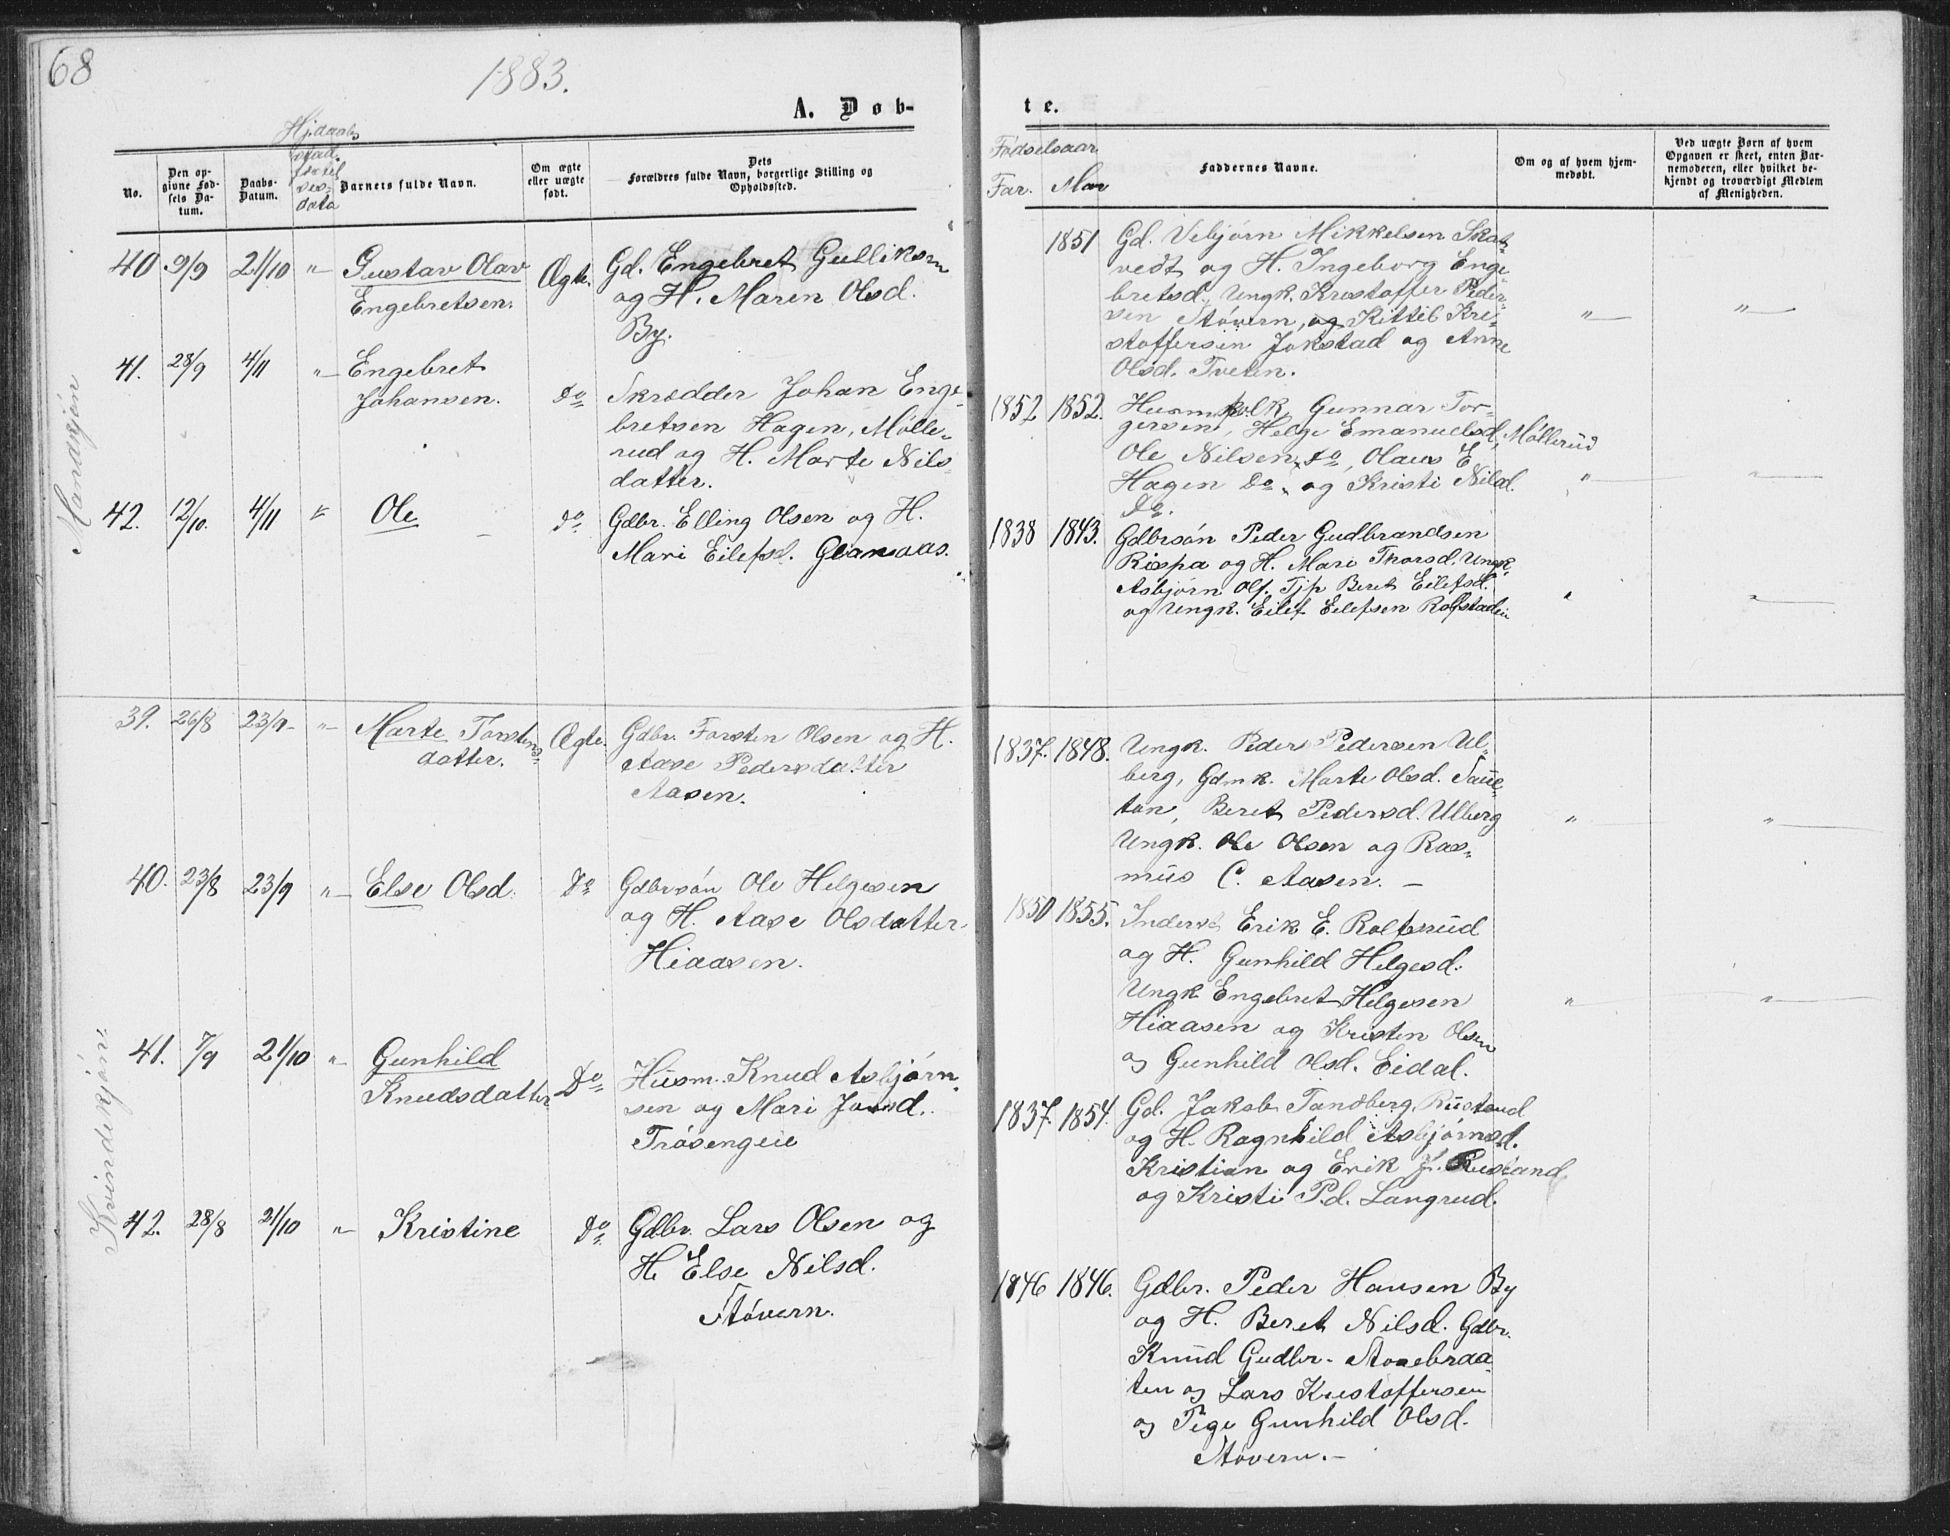 68
1883.
A. Døb-
te.
No.
Den op-
givne Fød-
sels Da-
tum.
Daabs-
Datum.
Hjdaabs
stad-
data
Barnets fulde Navn.
Om ægte
eller uægte
født.
Dets
Forældres fulde Navn, borgerlige Stilling og
Opholdssted.
Fødselsaar
Far. Mor
Faddernes Navne.
Om og af hvem hjem-
medøbt.
Ved uægte Børn af hvem
Opgaven er skeet, enten Bar-
nemoderen, eller hvilket be-
kjendt og troværdigt Medlem
af Menigheden.
Mandkjøn
40 9/9 21/10 " Gustav Olav
Engebretsen.
Ægte.
Gd. Engebret Gulliksen
og H. Maren Olsd.
By.
1851
Gd. Vebjörn Mikkelsen Skat-
vedt og H. Ingeborg Enge-
bretsd., Ungk. Kristoffer Peder-
sen Støvern, og Kittil Kri-
stoffersen Jokstad og Anne
Olsd. Tveten.
" "
41. 28/9 4/11 " Engebret
Johansen.
do
Skrædder Johan Enge-
bretsen Hagen, Mølle-
rud og H. Marte Nils-
datter.
1852 1852.
Husmfolk Gunnar Tor-
gersen, Helge Emanuelsd. Møllerud
Ole Nilsen do, Olaus E.
Hagen do, og Kristi Nilsd.
do.
" "
42. 12/10. 4/11 " Ole
do
Gdbr. Elling Olsen og H.
Mari Eilefsd. Glamaas.
1838 1843.
Gdbrsön Peder Gudbrandsen
Rispa og H. Mari Thorsd. Ungk.
Asbjørn Ols. Tjp Beret Eilefsd.
og Ungk. Eilef Eilefsen Rolfstadeie
" "
Kvindekjön
39. 26/8 23/9 " Marte Torstens
datter.
Ægte.
Gdbr. Torsten Olsen og H.
Aase Pedersdatter
Aasen.
1837. 1848.
Ungk. Peder Pedersen Ul-
berg, Gdmk. Marte Olsd. Saue-
ton, Beret Pedersd. Ulberg
Ungk. Ole Olsen og Ras-
mus C. Aasen.
" "
40. 23/8 23/9 " Else Olsd.
do
Gdbrsön Ole Helgesen
og H. Aase Olsdatter
Hiaasen.
1850 1855.
Inderst Erik E. Rolfsrud
og H. Gunhild Helgesd.
Ungk Engebret Helgesen
Hiaasen og Kristen Olsen
og Gunhild Olsd. Eidal.
" "
41. 7/9 21/10 " Gunhild
Knudsdatter
Do
Husm. Knud Asbjørn-
sen og Mari Jonsd.
Tråsengeie
1837. 1854.
Gd. Jakob Tandberg, Rustand
og H. Ragnhild Asbjørnsd.
Kristian og Erik J. Rustand
og Kristi Pd. Langrud.
42. 28/8 21/10 " Kristine
do
Gdbr. Lars Olsen og
H. Else Nilsd.
Støvern.
1846 1846.
Gdbr. Peder Hansen By
og H. Beret Nilsd. Gdbr.
Knud Gudbr. Stovebraa-
ten og Lars Kristoffersen
og Pige Gunhild Olsd.
Støvern.